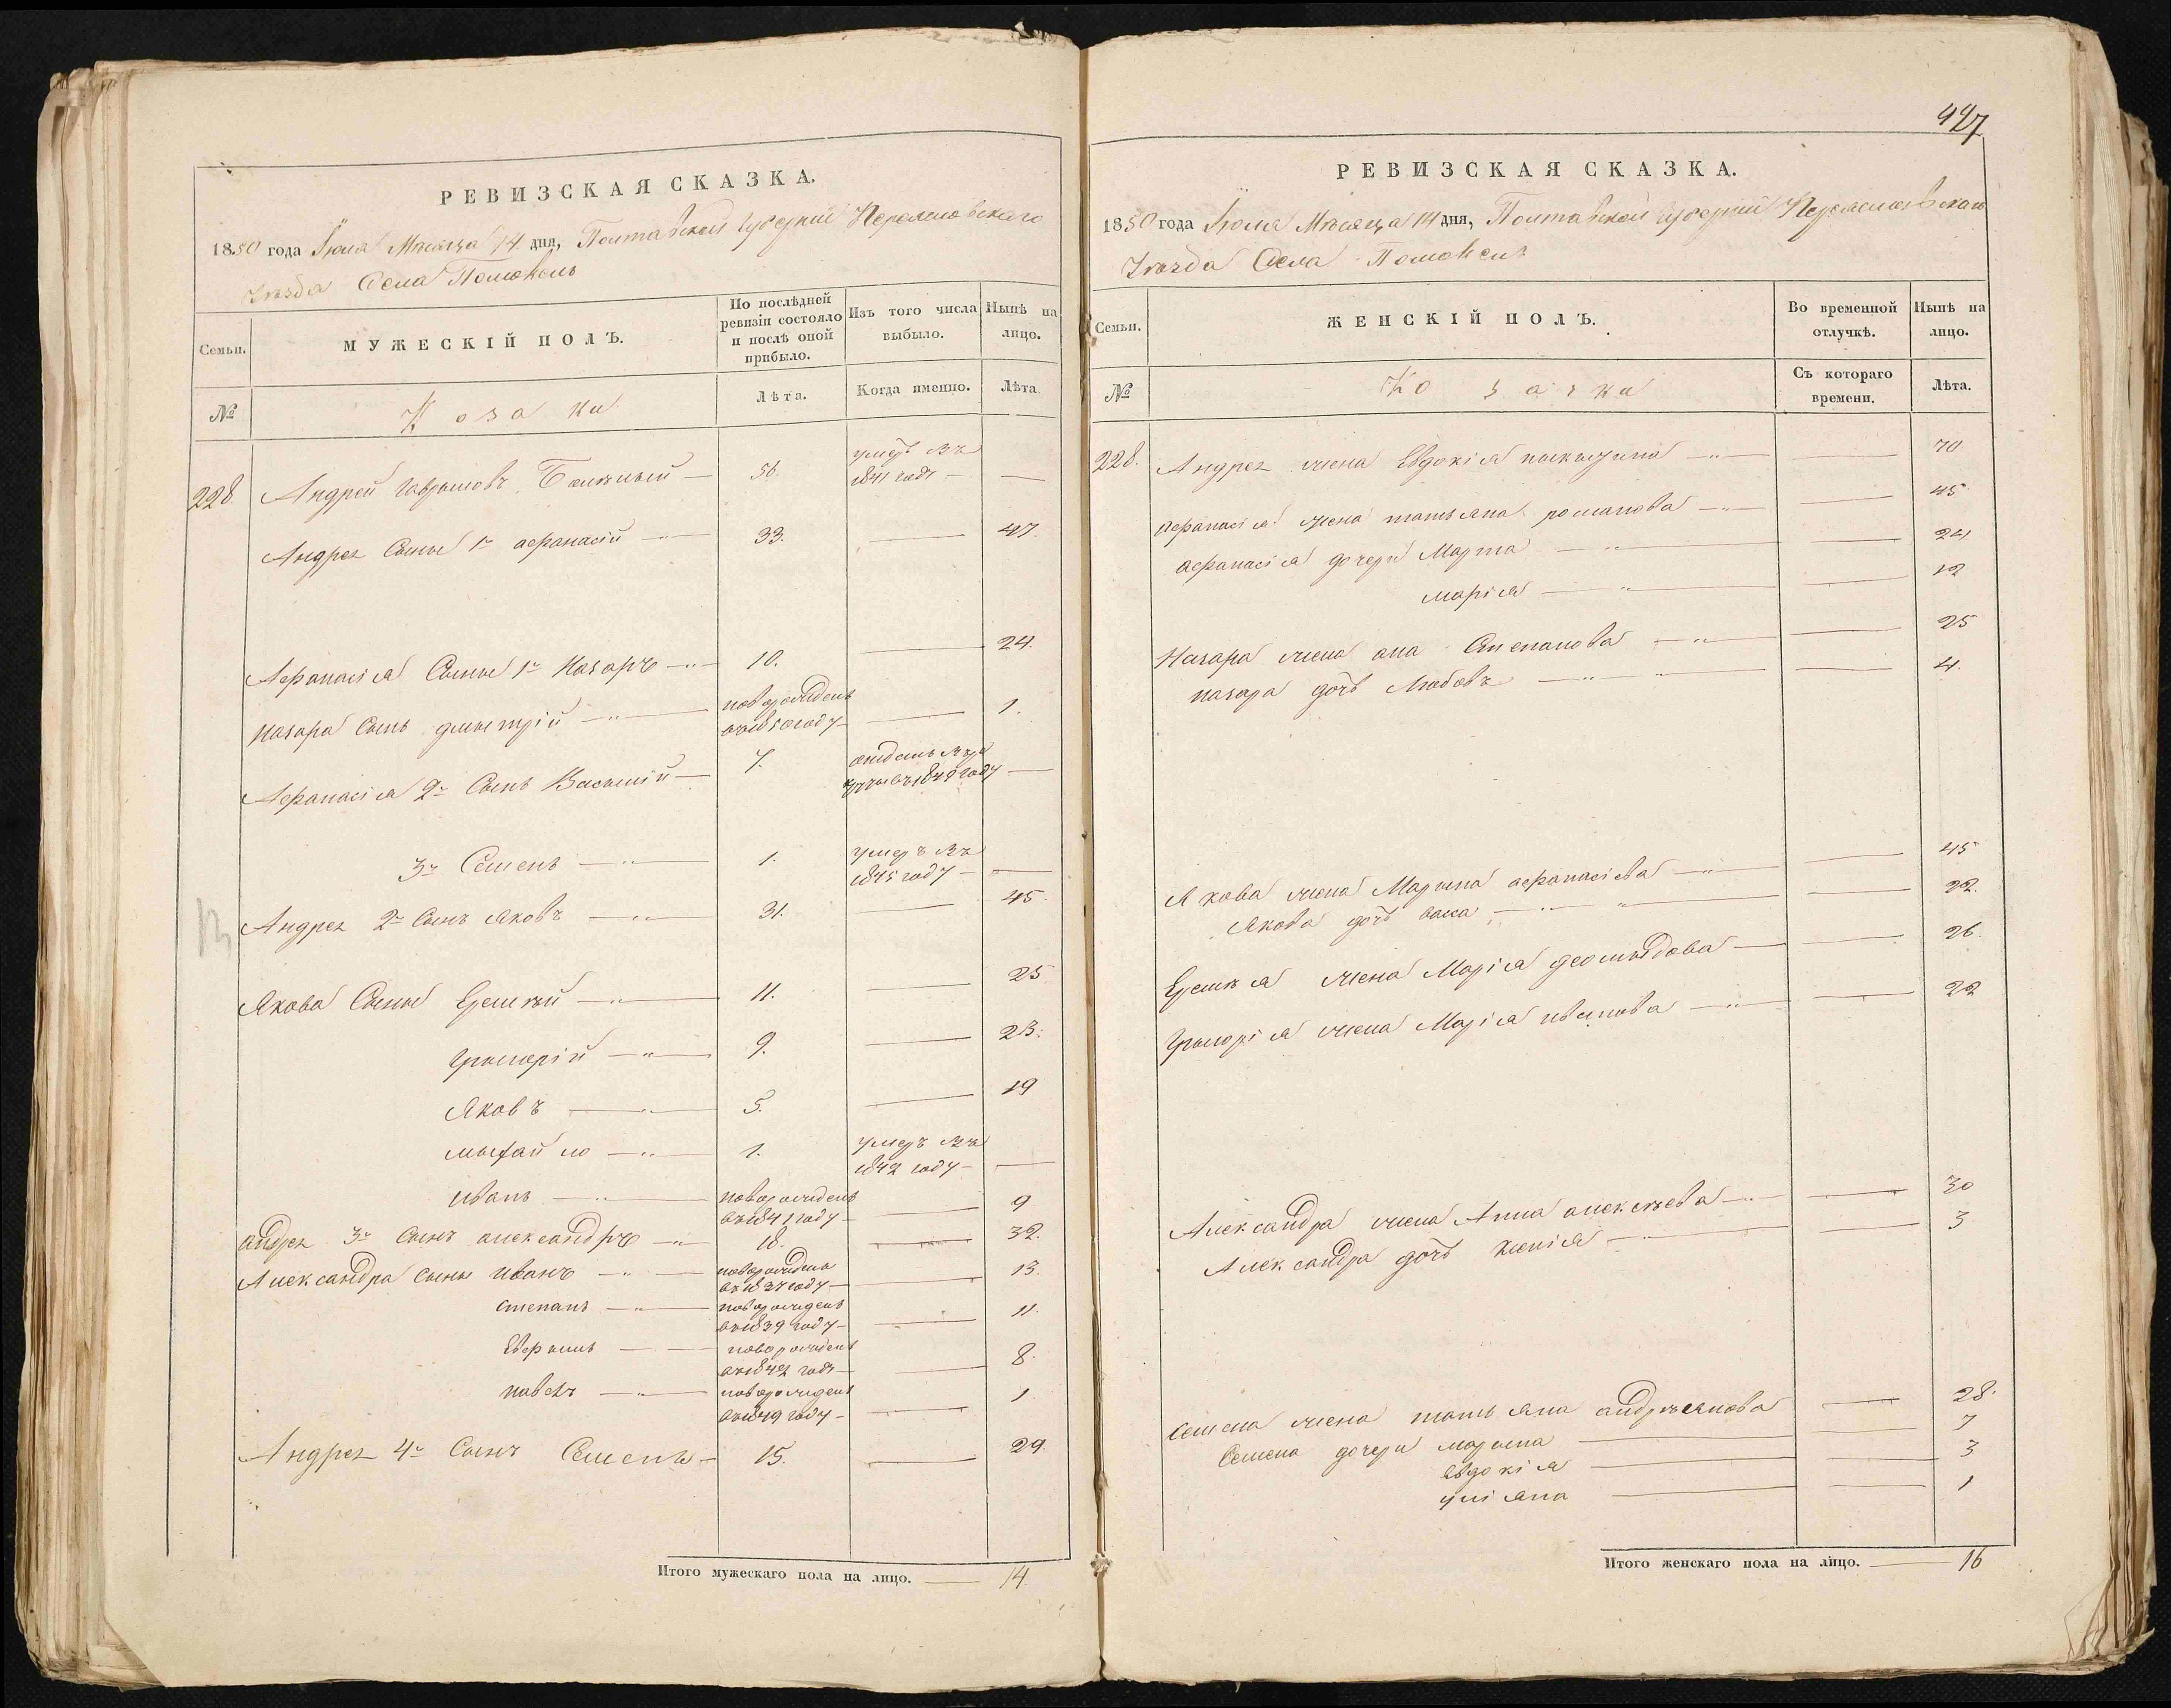 РЕВИЗСКАЯ СКАЗКА.
1850 года Іюля Месяца 14 дня, Полтавской губерніи Переяславскаго
Уезда Села Помоклъ
Семьи.
МУЖЕСКІЙ ПОЛЪ.
По послѣдней ревизіи состояло и послѣ оной прибыло.
Изъ того числа выбыло.
Нынѣ на лицо.
№
Козаки
Лѣта.
Когда именно.
Лѣта
228. Андрей Гавриловъ — 56. умеръ въ 1841 годъ — —
Андрея Сыны 1й афанасій — 33. — 47.
Афанасія Сыны 1й Назаръ — 10. — 24.
Назара Сынъ дмытрій — новорожденъ въ 1850 году — — 1.
Афанасія 2й Сынъ Василій — 7. въ 1849 году —
3й Семенъ — 1. умеръ въ 1845 году — —
Андрея 2й Сынъ Яковъ — 31. — 45.
Якова Сыны Еремѣй — 11. — 25
Григорій — 9. — 23.
Яковъ — 5. — 19
мыхайло — 1. умеръ въ 1842 году — —
иванъ — новорожденъ въ 1841 году — — 9
андрея 3й Сынъ александръ — 18. — 32.
Александра Сыны иванъ — новорожденъ въ 1837 году — — 13.
степанъ — новорожденъ въ 1839 году — — 11.
— новорожденъ въ 1842 году — — 8.
павелъ — новорожденъ въ 1849 году — — 1
Андрея 4й Сынъ Семенъ — 15. — 29
Итого мужескаго пола на лицо. — 14.
427
РЕВИЗСКАЯ СКАЗКА.
1850 года Іюля Месяца 14 дня, Полтавской губерніи Переяславскаго
Уезда Села Помоклъ
Семьи.
ЖЕНСКІЙ ПОЛЪ.
Во временной отлучкѣ.
Нынѣ на лицо.
№
Козачки
Съ котораго времени.
Лѣта.
228. Андрея жена Евдокія — — 70
афанасія жена татьяна романова — — 45
афанасія дочери Марта — — 24
марія — — 12
Назара жена ана Степанова — — 25
назара дочь Любовъ — — 4.
Якова жена Марина афанасіева — — 45
Якова дочь васа — — 22.
Еремѣя жена Марія — — 26.
Григорія жена Марія иванова — — 22
Александра жена Анна алексѣева — — 30
Александра дочь ксенія — — 3
Семена жена татьяна андрѣянова — 28.
Семена дочери марина — — 7
евдокія — — 3
уліяна — — 1
Итого женскаго пола на лицо. — 16